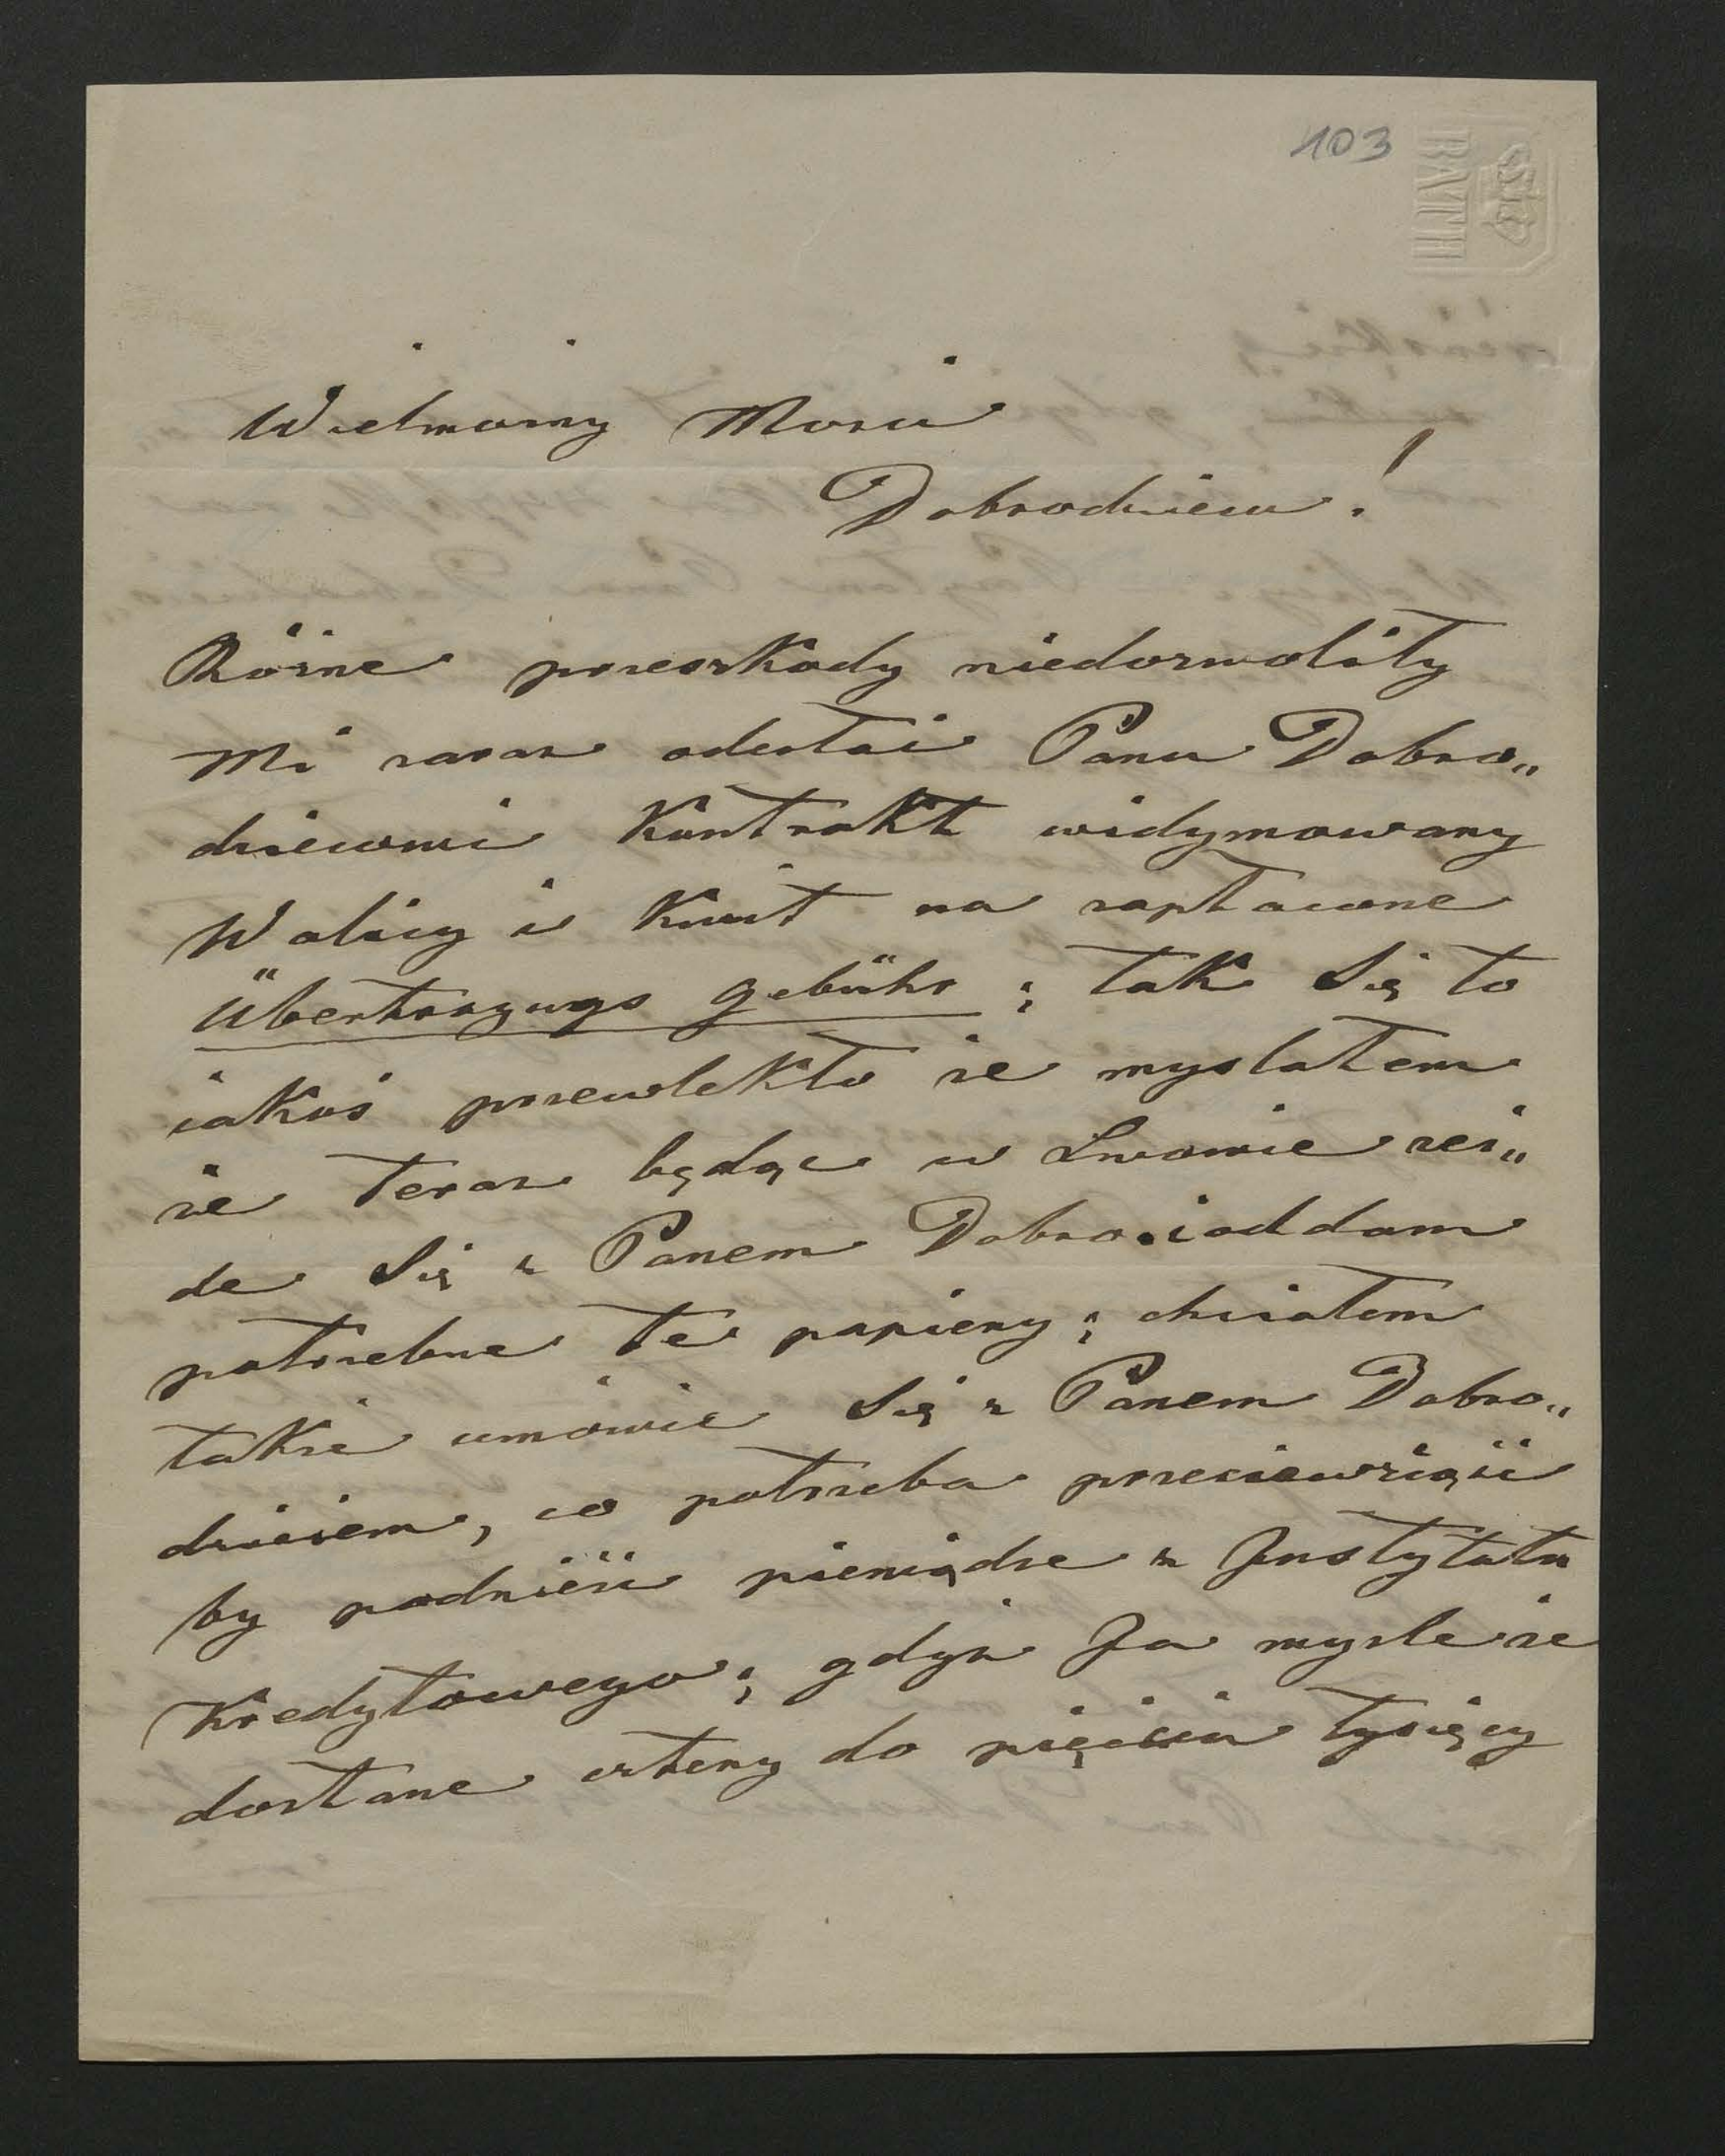 103
BATH
Wielmożny Mości
Dobrodzieiu!
Różne przeszkody niedozwoliły
Mi zaraz odesłać Panu Dobro„
dzieiowi Kontrakt widymowany
Wolicy i Kwit na zapłacone
Übertragungs gebühr; tak Się to
iakoś przewlekło że myslałem
że teraz będąc w Lwowie zei„
de Się z Panem Dobro. i oddam
potrzebne te papiery; chciałem
także umówić Się z Panem Dobro„
dzieiem, co potrzeba przedsięwziąść
by podnieść pieniądze z Instytutu
Kredytowego; gdyż Ja mysle że
dostane cztery do pięciu tysięcy